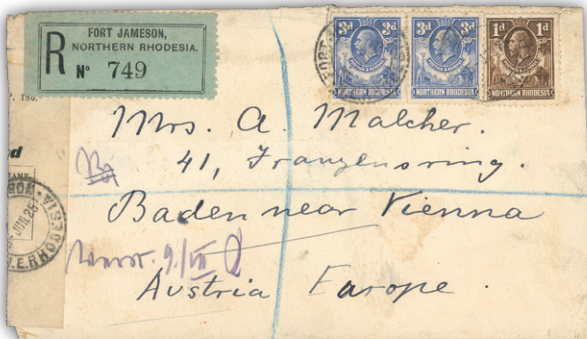 FORT JAMESON,
NORTHERN RHODESIA.
R No 749
3d 3d 1d
NORTHERN RHODESIA NORTHERN RHODESIA NORTHERN RHODESIA
Mrs. A. Malcher.
41, Franzensring.
Baden near Vienna
9/VII
Austria Europe.
JUN 25
N.E.RHODESIA